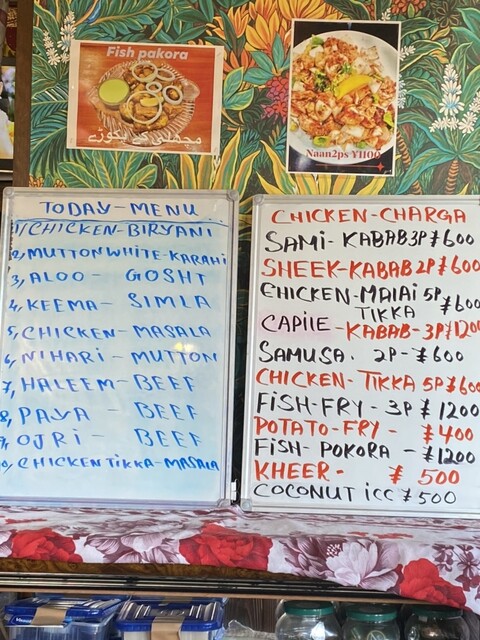 Fish pakora
مچھلی کے پکوڑے
Naan2ps Y1100
TODAY-MENU
1, CHICKEN-BIRYANI
2, MUTTON WHITE-KARAHI
3, ALOO - GOSHT
4, KEEMA - SIMLA
5, CHICKEN-MASALA
6, NIHARI - MUTTON
7, HALEEM - BEEF
8, PAYA - BEEF
9, OJRI - BEEF
10, CHICKEN TIKKA-MASALA
CHICKEN-CHARGA
SAMI-KABAB 3P ¥600
SHEEK-KABAB 2P ¥600
CHICKEN-MALAI 5P
TIKKA ¥600
CAPIIE-KABAB-3P ¥1200
SAMUSA. 2P-¥600
CHICKEN-TIKKA 5P ¥600
FISH-FRY-3P ¥1200
POTATO-FRY-¥400
FISH-POKORA-¥1200
KHEER-¥500
COCONUT icc ¥500